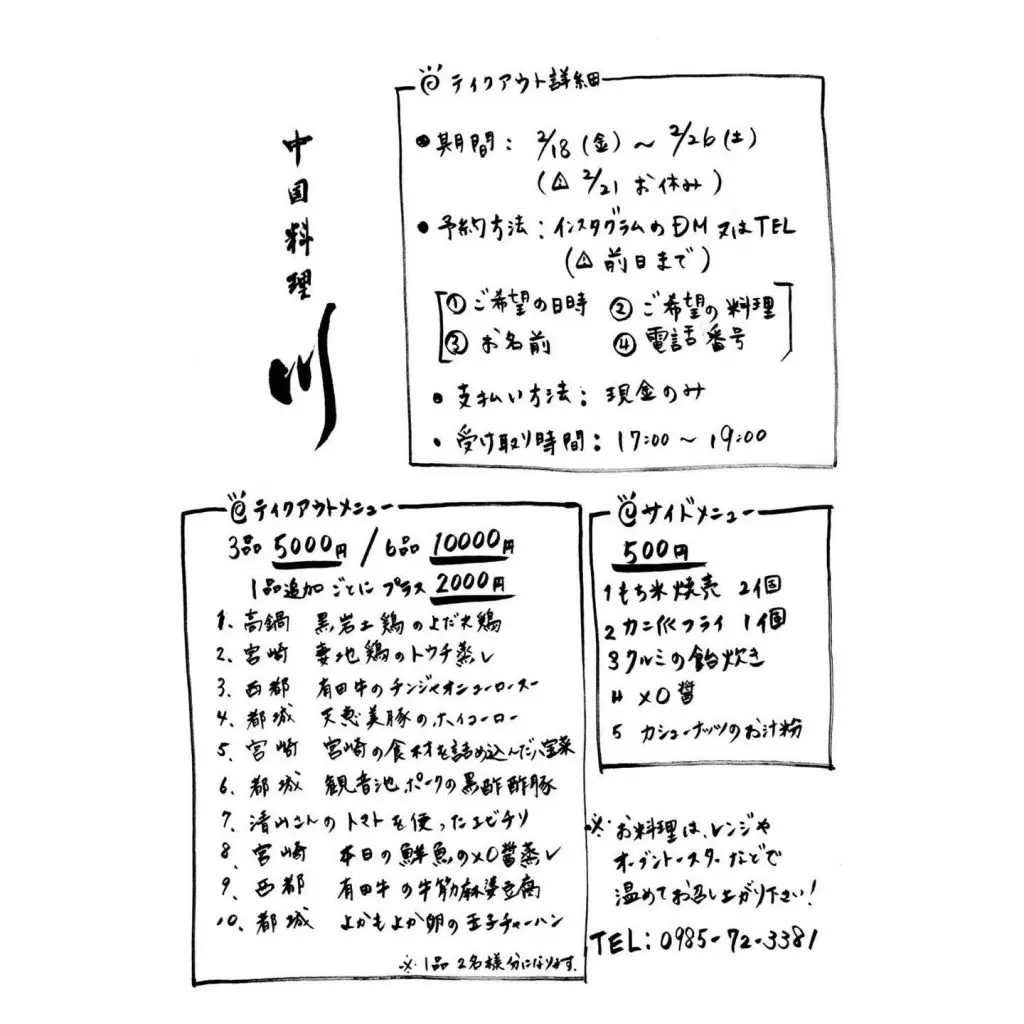 中国料理
川
テイクアウト詳細
●期間: 2/18(金)~2/26(土)
(⚠2/21 お休み)
●予約方法:インスタグラムのDM又はTEL
(⚠前日まで)
①ご希望の日時 ②ご希望の料理
③お名前 ④電話番号
●支払い方法:現金のみ
●受け取り時間:17:00~19:00
テイクアウトメニュー
3品 5000円 / 6品 10000円
1品追加ごとにプラス2000円
1、高鍋 黒岩土鶏のよだれ鶏
2、宮崎 妻地鶏のトウチ蒸し
3、西都 有田牛のチンジャオニューロースー
4、都城 天恵美豚のホイコーロー
5、宮崎 宮崎の食材を詰め込んだ八宝菜
6、都城 観音池ポークの黒酢酢豚
7、清山さんのトマトを使ったエビチリ
8、宮崎 本日の鮮魚のXO醤蒸し
9、西都 有田牛の牛筋麻婆豆腐
10、都城 よかもよか卵の玉子チャーハン
※1品 2名様分になります。
サイドメニュー
500円
1もち米焼売 2個
2カニ爪フライ 1個
3クルミの飴炊き
4 XO醤
5 カシューナッツのお汁粉
※お料理は、レンジや
オーブントースターなどで
温めてお召し上がり下さい!
TEL:0985-72-3381